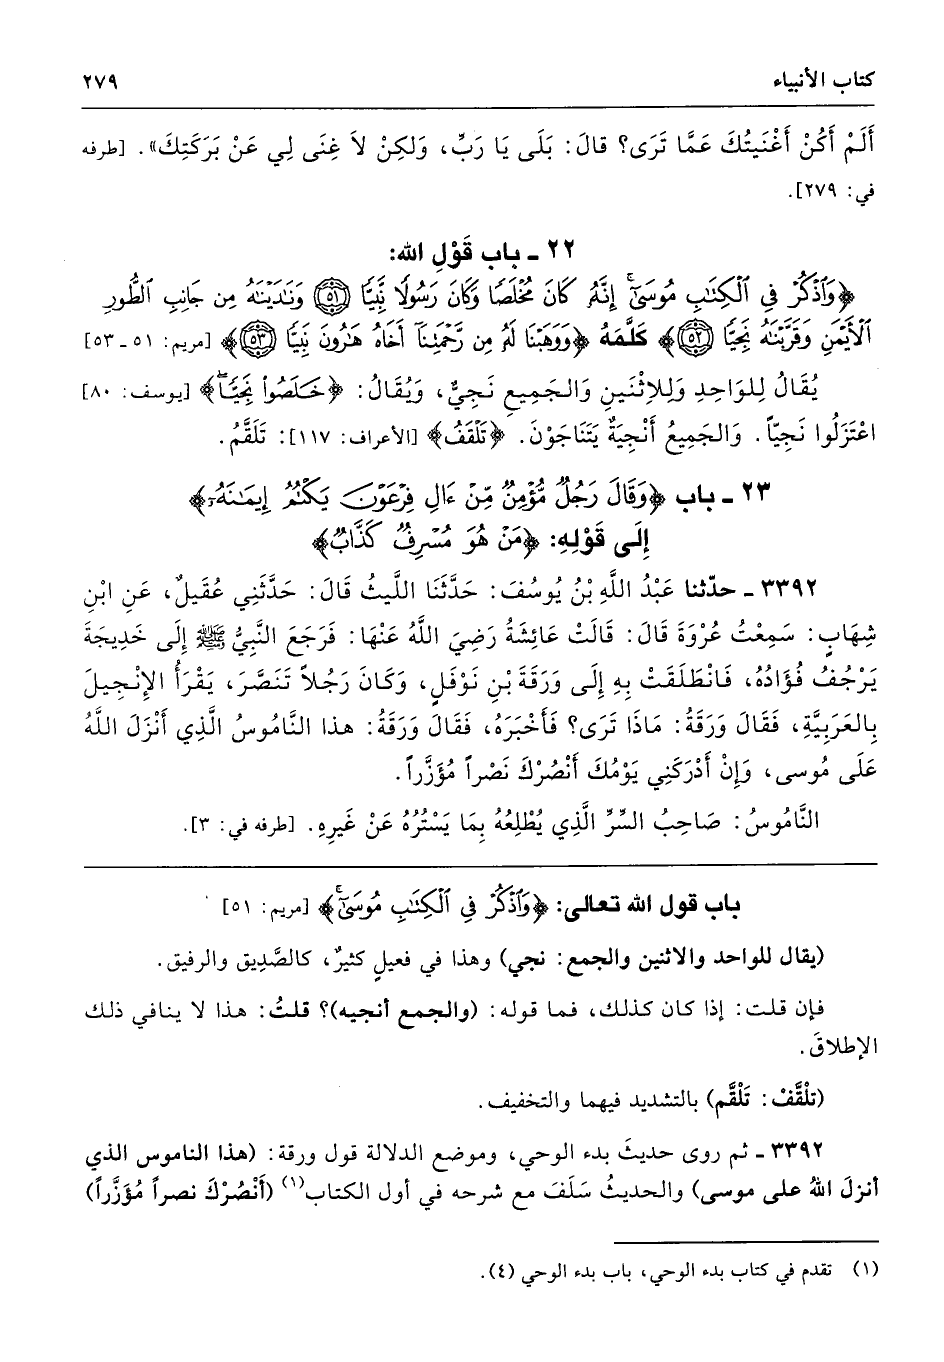 كتاب الأنبياء ٢٧٩
أَلَمْ أَكُنْ أَغْنَيتُكَ عَمَّا تَرَى؟ قالَ: بَلَى يَا رَبِّ، وَلكِنْ لاَ غِنَى لِي عَنْ بَرَكَتِكَ». [طرفه
في: ٢٧٩].
٢٢ ـ باب قَوْلِ الله:
﴿وَٱذْكُرْ فِى ٱلْكِتَٰبِ مُوسَىٰٓ ۚ إِنَّهُۥ كَانَ مُخْلَصًا وَكَانَ رَسُولًا نَّبِيًّا ﴿٥١﴾ وَنَٰدَيْنَٰهُ مِن جَانِبِ ٱلطُّورِ
ٱلْأَيْمَنِ وَقَرَّبْنَٰهُ نَجِيًّا ﴿٥٢﴾﴾ كَلَّمَهُ ﴿وَوَهَبْنَا لَهُۥ مِن رَّحْمَتِنَآ أَخَاهُ هَٰرُونَ نَبِيًّا ﴿٥٣﴾﴾ [مريم: ٥١ ـ ٥٣]
يُقَالُ لِلوَاحِدِ وَلِلاِثْنَينِ وَالجَمِيعِ نَجِيٌّ، وَيُقَالُ: ﴿خَلَصُوا۟ نَجِيًّا ۖ﴾ [يوسف: ٨٠]
اعْتَزَلُوا نَجِيّاً. وَالجَمِيعُ أَنْجِيَةٌ يَتَنَاجَوْنَ. ﴿تَلْقَفُ﴾ [الأعراف: ١١٧]: تَلَقَّمُ.
٢٣ ـ باب ﴿وَقَالَ رَجُلٌ مُّؤْمِنٌ مِّنْ ءَالِ فِرْعَوْنَ يَكْتُمُ إِيمَٰنَهُۥٓ﴾
إِلَى قَوْلِهِ: ﴿مَنْ هُوَ مُسْرِفٌ كَذَّابٌ﴾
٣٣٩٢ ـ حدّثنا عَبْدُ اللَّهِ بْنُ يُوسُفَ: حَدَّثَنَا اللَّيثُ قَالَ: حَدَّثَنِي عُقَيلٌ، عَنِ ابْنِ
شِهَابٍ: سَمِعْتُ عُرْوَةَ قَالَ: قَالَتْ عَائِشَةُ رَضِيَ اللَّهُ عَنْهَا: فَرَجَعَ النَّبِيُّ ﷺ إِلَى خَدِيجَةَ
يَرْجُفُ فُؤَادُهُ، فَانْطَلَقَتْ بِهِ إِلَى وَرَقَةَ بْنِ نَوْفَلٍ، وَكَانَ رَجُلاً تَنَصَّرَ، يَقْرَأُ الإِنْجِيلَ
بِالعَرَبِيَّةِ، فَقَالَ وَرَقَةُ: مَاذَا تَرَى؟ فَأَخْبَرَهُ، فَقَالَ وَرَقَةُ: هذا النَّامُوسُ الَّذِي أَنْزَلَ اللَّهُ
عَلَى مُوسى، وَإِنْ أَدْرَكَنِي يَوْمُكَ أَنْصُرْكَ نَصْراً مُؤَزَّراً.
النَّامُوسُ: صَاحِبُ السِّرِّ الَّذِي يُطْلِعُهُ بِمَا يَسْتُرُهُ عَنْ غَيرِهِ. [طرفه في: ٣].
باب قول الله تعالى: ﴿وَٱذْكُرْ فِى ٱلْكِتَٰبِ مُوسَىٰٓ ۚ﴾ [مريم: ٥١]
(يقال للواحد والاثنين والجمع: نجي) وهذا في فعيلٍ كثيرٌ، كالصَّدِيق والرفيق.
فإن قلت: إذا كان كذلك، فما قوله: (والجمع أنجيه)؟ قلتُ: هذا لا ينافي ذلك
الإطلاقَ.
(تلْقَّفْ: تَلْقَّم) بالتشديد فيهما والتخفيف.
٣٣٩٢ ـ ثم روى حديثَ بدء الوحي، وموضع الدلالة قول ورقة: (هذا الناموس الذي
أنزلَ اللهُ على موسى) والحديثُ سَلَفَ مع شرحه في أول الكتاب(١) (أَنْصُرْكَ نصراً مُؤَزَّراً)
(١) تقدم في كتاب بدء الوحي، باب بدء الوحي (٤).